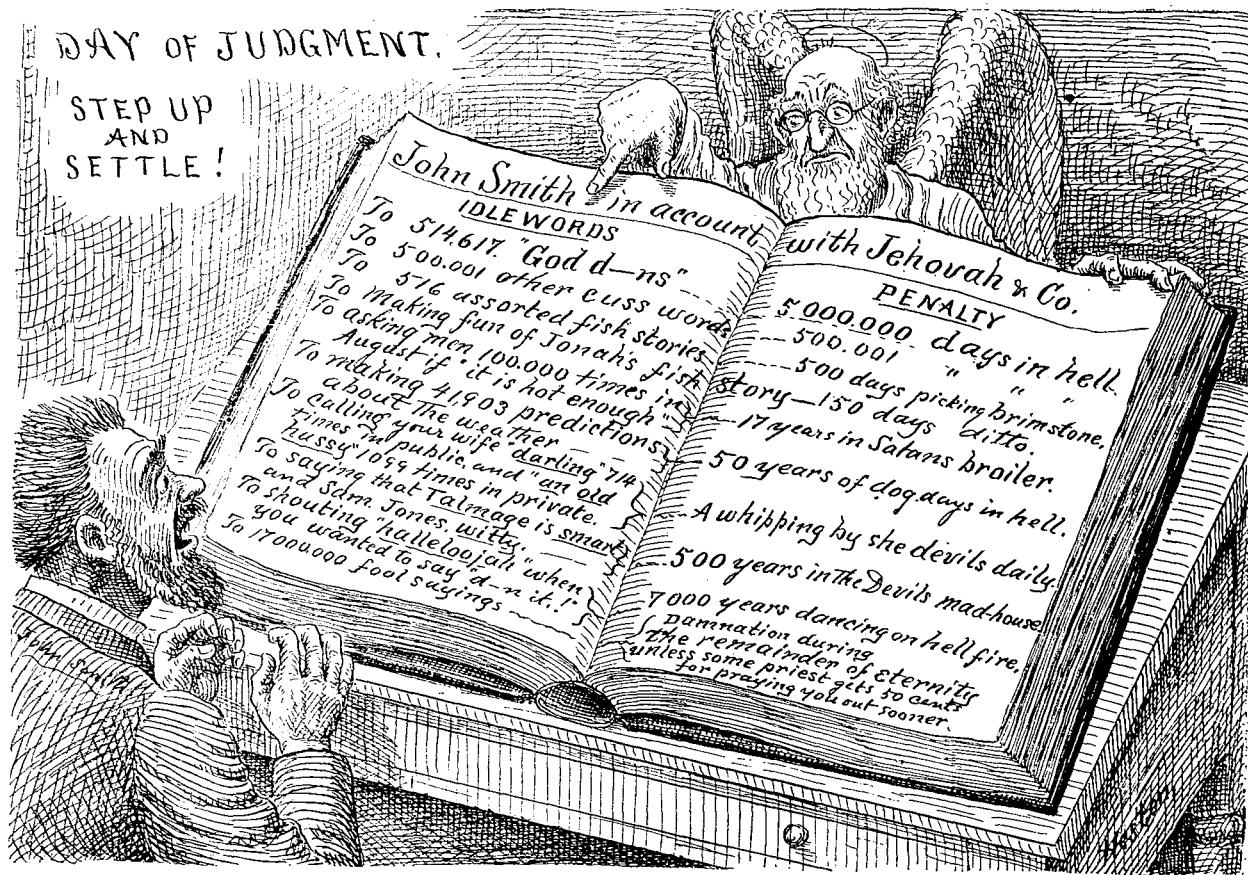 DAY OF JUDGMENT.
STEP UP
AND
SETTLE!
John Smith in account
IDLE WORDS
To 514.617. "God d—ns"
To 500.001 other cuss words
To 516 assorted fish stories
To making fun of Jonah's fish
To asking men 100.000 times in
August if "it is hot enough"
To making 41.903 predictions
about the weather
To calling your wife "darling" 714
times in public and "an old
hussy" 1099 times in private.
To saying that Talmage is smart
and Sam. Jones, witty.
To shouting "halleloojah" when
you wanted to say "d—n it"!
To 17.000.000 fool sayings
with Jehovah & Co.
PENALTY
5.000.000 days in hell.
500.001 " " "
500 days picking brimstone.
story—150 days ditto.
17 years in Satans broiler.
50 years of dog days in hell.
A whipping by she devils daily.
500 years in the Devils mad-house
7000 years dancing on hell fire.
Damnation during
the remainder of Eternity
unless some priest gets 50 cents
for praying you out sooner.
John Smith
Heston